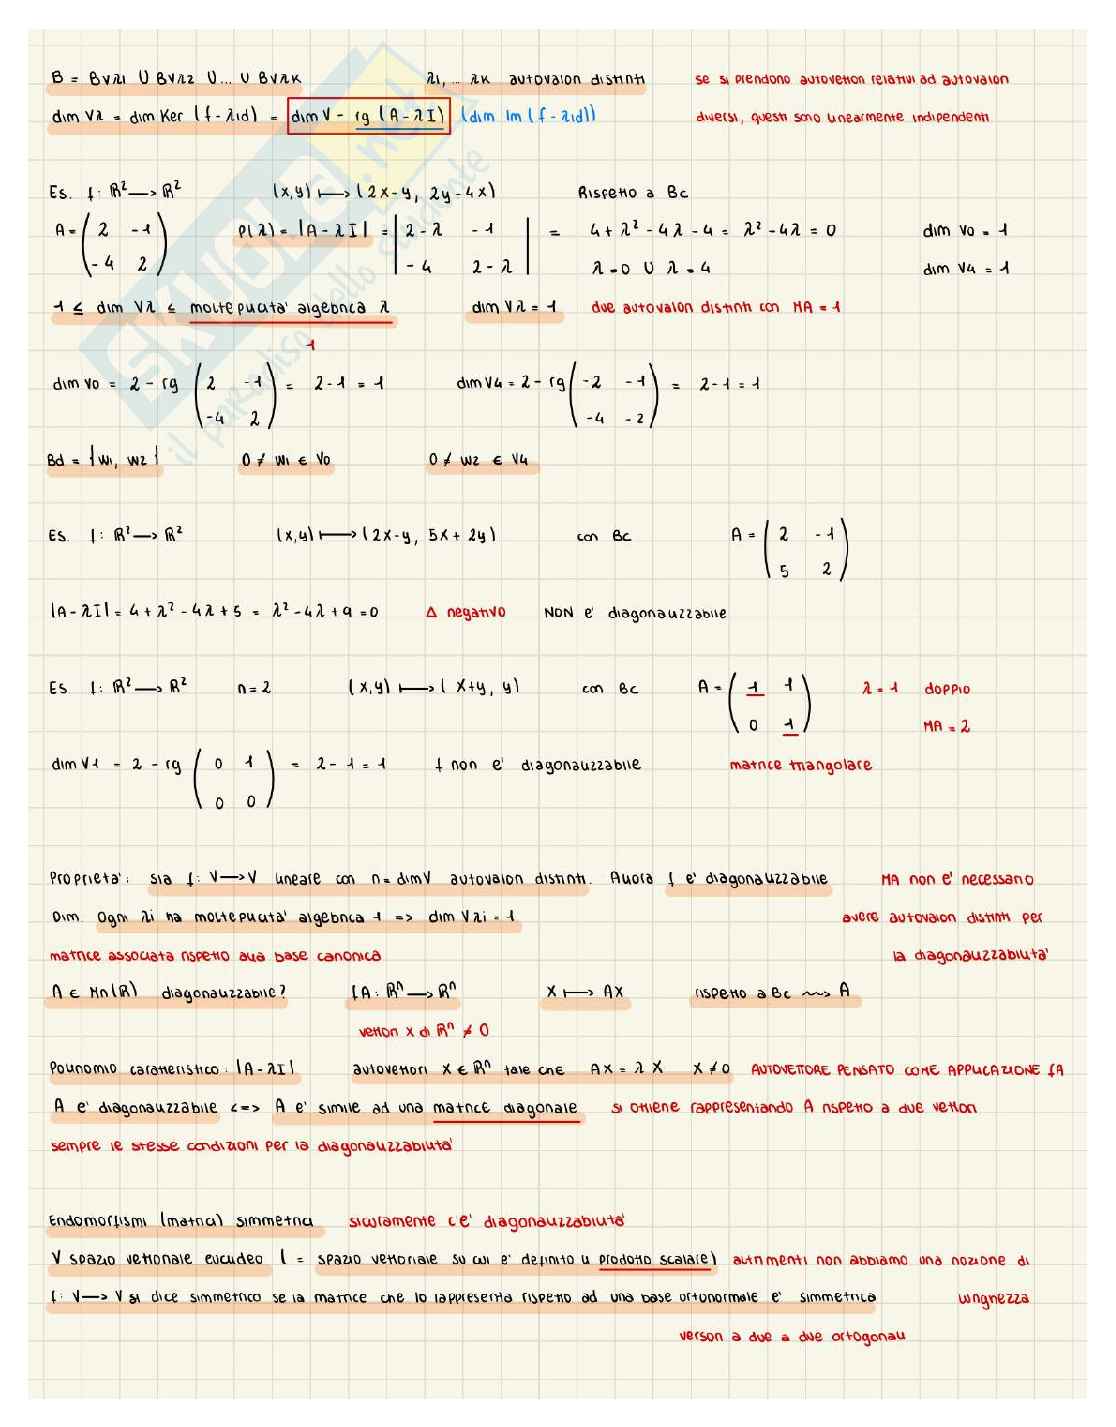 B = Bvλ1 U Bvλ2 U... U Bvλk λ1, ... λk autovalori distinti se si prendono autovettori relativi ad autovalori
dim Vλ = dim Ker (f - λid) = dim V - rg (A - λI) (dim Im (f - λid)) diversi, questi sono linearmente indipendenti
Es. f: ℝ² → ℝ² (x,y) ↦ (2x-y, 2y-4x) Rispetto a Bc
A = (2 -1 P(λ) = |A - λI| = |2-λ -1| = 4 + λ² - 4λ - 4 = λ² - 4λ = 0 dim V0 = 1
-4 2) |-4 2-λ| λ = 0 U λ = 4 dim V4 = 1
1 ≤ dim Vλ ≤ molteplicita' algebrica λ dim Vλ = 1 due autovalori distinti con MA = 1
1
dim V0 = 2 - rg (2 -1 = 2-1 = 1 dim V4 = 2 - rg (-2 -1 = 2-1 = 1
-4 2) -4 -2)
Bd = {w1, w2} 0 ≠ w1 ∈ V0 0 ≠ w2 ∈ V4
Es. f: ℝ² → ℝ² (x,y) ↦ (2x-y, 5x + 2y) con Bc A = (2 -1
5 2)
|A - λI| = 4 + λ² - 4λ + 5 = λ² - 4λ + 9 = 0 Δ negativo NON e' diagonalizzabile
Es f: ℝ² → ℝ² n = 2 (x,y) ↦ (x+y, y) con Bc A = (1 1 λ = 1 doppio
0 1) MA = 2
dim V1 = 2 - rg (0 1 = 2 - 1 = 1 f non e' diagonalizzabile matrice triangolare
0 0)
Proprieta': sia f: V → V lineare con n = dimV autovalori distinti. Allora f e' diagonalizzabile MA non e' necessario
Dim. Ogni λi ha molteplicita' algebrica 1 => dim Vλi = 1 avere autovalori distinti per
matrice associata rispetto alla base canonica la diagonalizzabilita'
A ∈ Mn(ℝ) diagonalizzabile? fA: ℝⁿ → ℝⁿ X ↦ AX rispetto a Bc ⇝ A
vettori x di ℝⁿ ≠ 0
Polinomio caratteristico: |A - λI| autovettori X ∈ ℝⁿ tale che AX = λX X ≠ 0 AUTOVETTORE PENSATO COME APPLICAZIONE fA
A e' diagonalizzabile <=> A e' simile ad una matrice diagonale si ottiene rappresentando A rispetto a due vettori
sempre le stesse condizioni per la diagonalizzabilita'
Endomorfismi (matrici) simmetrici sicuramente c'e' diagonalizzabilita'
V spazio vettoriale euclideo ( = spazio vettoriale su cui e' definito il prodotto scalare) altrimenti non abbiamo una nozione di
f: V → V si dice simmetrico se la matrice che lo rappresenta rispetto ad una base ortonormale e' simmetrica lunghezza
versori a due a due ortogonali
SKUOLA.net
il paradiso dello studente